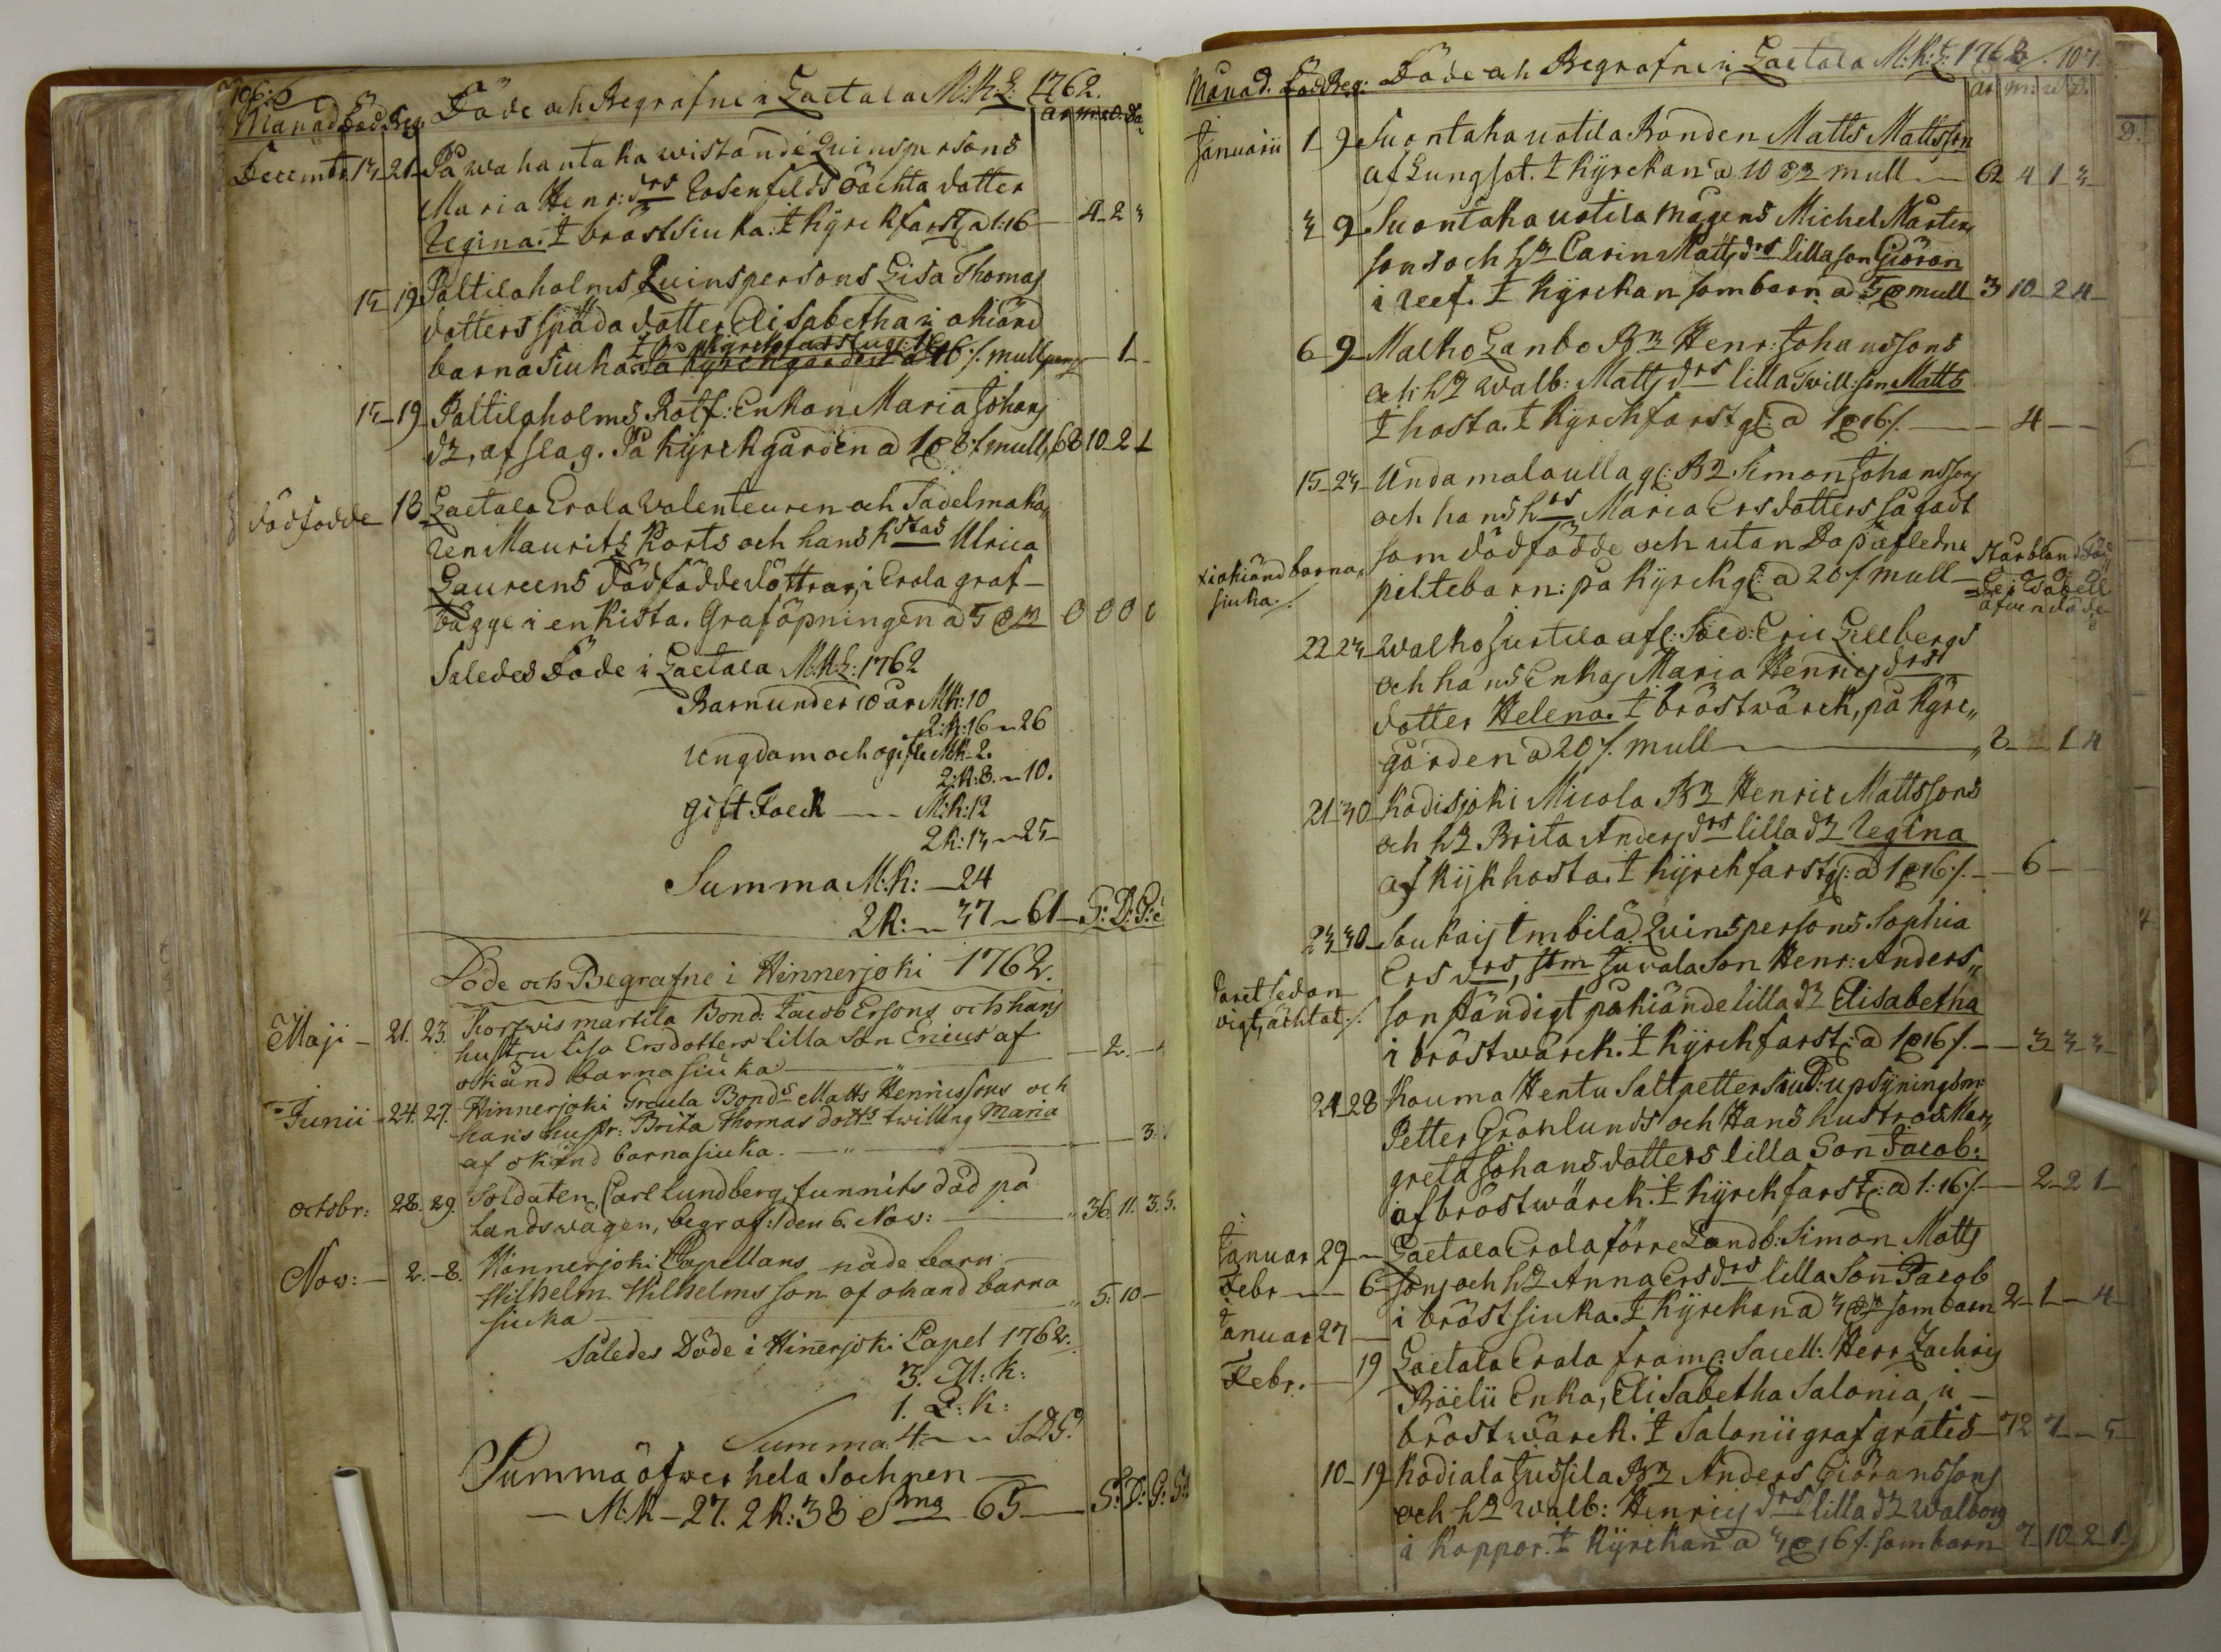 106:
Månad Död. Beg. Döde och Begrafne i Laetala M:K:L: 1762. år m: v. da.
Decemb: 13 21 På Wahantaka wistande Quinspersons
Maria Henr: drs Rosenfelds oächta dotter
Regina. I bröstsiuka: I Kyrckfarstg a 1:16 4 2 3
15 19 Paltilaholms Quinspersons Lisa Thomas
dotters späda dotter Elisabetha i okiänd
barnasiuka. På Kyrckgården a 16 /. mull 1
15 19 Paltilaholms Rotf: Enkan Maria Johans
dr, af slag. På Kyrckgården a 1 8 /. mull, 68 10 2 1
dödfödde 18 Laetala Erola Valenteuren och Sadelmaka
ren Maurits Korts och hans hstrus Ulrica
Laureens dödfödde döttrar, i Erola graf
bägge i en Kista. Graföpningen a 5 0 0 0 0
Saledes Döde i Laetala M:K:L: 1762
Barn under 10 år M:K: 10
Q:K: 16 26
Ungdom och ogifte M:K. 2.
Q:K: 8. 10.
Gift Folck M:K: 12
Q K: 13 25
Summa M:K: 24
Q K: 37 61 S: D: G:
Döde och Begrafne i Hinnerjoki 1762.
Maji 21. 23. Korfwis martila Bond: Jacob Ersons och hans
hustru Lisa Ersdotters lilla Son Ericus af
okänd barnasiuka 2.
Junii 24. 27. Hinnerjoki Greula Bonds Matts Henricssons och
hans hustr: Brita Thomas dotts twilling Maria
af okänd barnasiuka. 3:
Octobr: 28. 29. Soldaten Carl Lundberg funnits död på
landswägen, begraf: den 6. Nov: 36. 11. 3. 5.
Nov: 2. 8. Hinnerjoki Capellans nåde barn
Wilhelm Wilhelms son af okänd barna
siuka 5: 10
Således Döde i Hinerjoki Capel 1762.
3. M: K:
1. Q: K:
Summa 4. S.D.G.
Summa öfwer hela Sochnen
M:K 27. Q K: 38 Sma 65 S: D: G: S:
Månad. Död Beg: Döde och Begrafne i Laetala M:K:L: 1763. 107.
år m: v: d.
Januarii 1 9 Suontaka uotila Bonden Matts Mattsson
af Lungsot. I Kyrckan a 10 mull 62 4 1 3
3 9 Suontaka uotila mågens Michel Mårten
sons och hr Carin Matts drs lilla son Giöran
i Reef. I Kyrckan som barn a 5 mull 3 10 2 4
6 9 Malko Lanbo Br Henr: Johanssons
och hr Walb: Matts drs lilla twill: son Matts
I hosta. I Kyrckfarstg: a 1 16 /. 4
15 23 Undamala ulla gl: Br Simon Johanssons
och hans hrs Maria Ers dotters så godt
som dödfödde och utan Dop afledne
i okiänd barna
siuka./.
piltebarn: på Kyrckg: a 20 /. mull Står bland död
de i Tabell
äfwen döde
22 23 Walko Justila afl: Sold: Eric Gellbergs
och hans Enkas Maria Henrics drs
dotter Helena. I bröstwärck, på Kyrc
gården a 20 /. mull 8 1 4
21 30 Kodisjoki Micola Br Henric Mattssons
och hr Brita Anders drs lilla dr Regina
af Kijkhosta. I Kyrckfarstg: a 1 16 /. 6
23 30 Soukais Imbila Quinspersons Sophia
Ers drs, som Juvala Son Henr: Anders
Paret sedan
vigt, ächtat./.
son ständigt påkiände lilla dr Elisabetha
i bröstwärck. I Kyrckfarst: a 1 16 /. 3 3 3
24 28 Kauma Hentu Saltpetter Siud: upsyningsm:
Petter Grönlunds och Hans hustros Mar
greta Johansdotters lilla Son Jacob:
af bröstwärck: I Kyrckfarst: a 1: 16 /. 2 2 1
Januar 29 Laetala Erola förre Landb: Simon Matts
Febr 6 sons och hr Anna Ers drs lilla Son Jacob
i bröstsiuka. I Kyrckan a 3 som barn 2 1 4
Januar 27
Febr. 19 Laetala Erola fram: Sacell: Herr Zachris
Böelii Enka, Elisabetha Salonia, i
bröstwärck. I Salonii graf gratis 72 7 5
10 19 Kodiala Jussila Br Anders Giöranssons
och hr Walb: Henrics drs lilla dr Walborg
i Koppor. I Kyrckan a 3 16 /. som barn 7 10 2 1